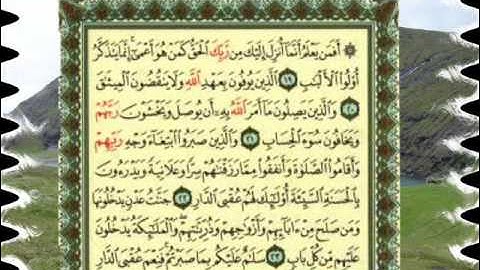 ۞ أَفَمَن يَعْلَمُ أَنَّمَا أُنزِلَ إِلَيْكَ مِن رَّبِّكَ الْحَقُّ كَمَنْ هُوَ أَعْمَىٰ إِنَّمَا يَتَذَكَّرُ
أُوْلُوا الْأَلْبَٰبِ ١٩ الَّذِينَ يُوفُونَ بِعَهْدِ اللَّهِ وَلَا يَنقُضُونَ الْمِيثَٰقَ
٢٠ وَالَّذِينَ يَصِلُونَ مَا أَمَرَ اللَّهُ بِهِ أَن يُوصَلَ وَيَخْشَوْنَ رَبَّهُمْ
وَيَخَافُونَ سُوءَ الْحِسَابِ ٢١ وَالَّذِينَ صَبَرُوا ابْتِغَاءَ وَجْهِ رَبِّهِمْ
وَأَقَامُوا الصَّلَوٰةَ وَأَنفَقُوا مِمَّا رَزَقْنَٰهُمْ سِرًّا وَعَلَانِيَةً وَيَدْرَءُونَ
بِالْحَسَنَةِ السَّيِّئَةَ أُوْلَٰئِكَ لَهُمْ عُقْبَى الدَّارِ ٢٢ جَنَّٰتُ عَدْنٍ يَدْخُلُونَهَا
وَمَن صَلَحَ مِنْ ءَابَائِهِمْ وَأَزْوَٰجِهِمْ وَذُرِّيَّٰتِهِمْ وَالْمَلَٰئِكَةُ يَدْخُلُونَ
عَلَيْهِم مِّن كُلِّ بَابٍ ٢٣ سَلَٰمٌ عَلَيْكُم بِمَا صَبَرْتُمْ فَنِعْمَ عُقْبَى الدَّارِ